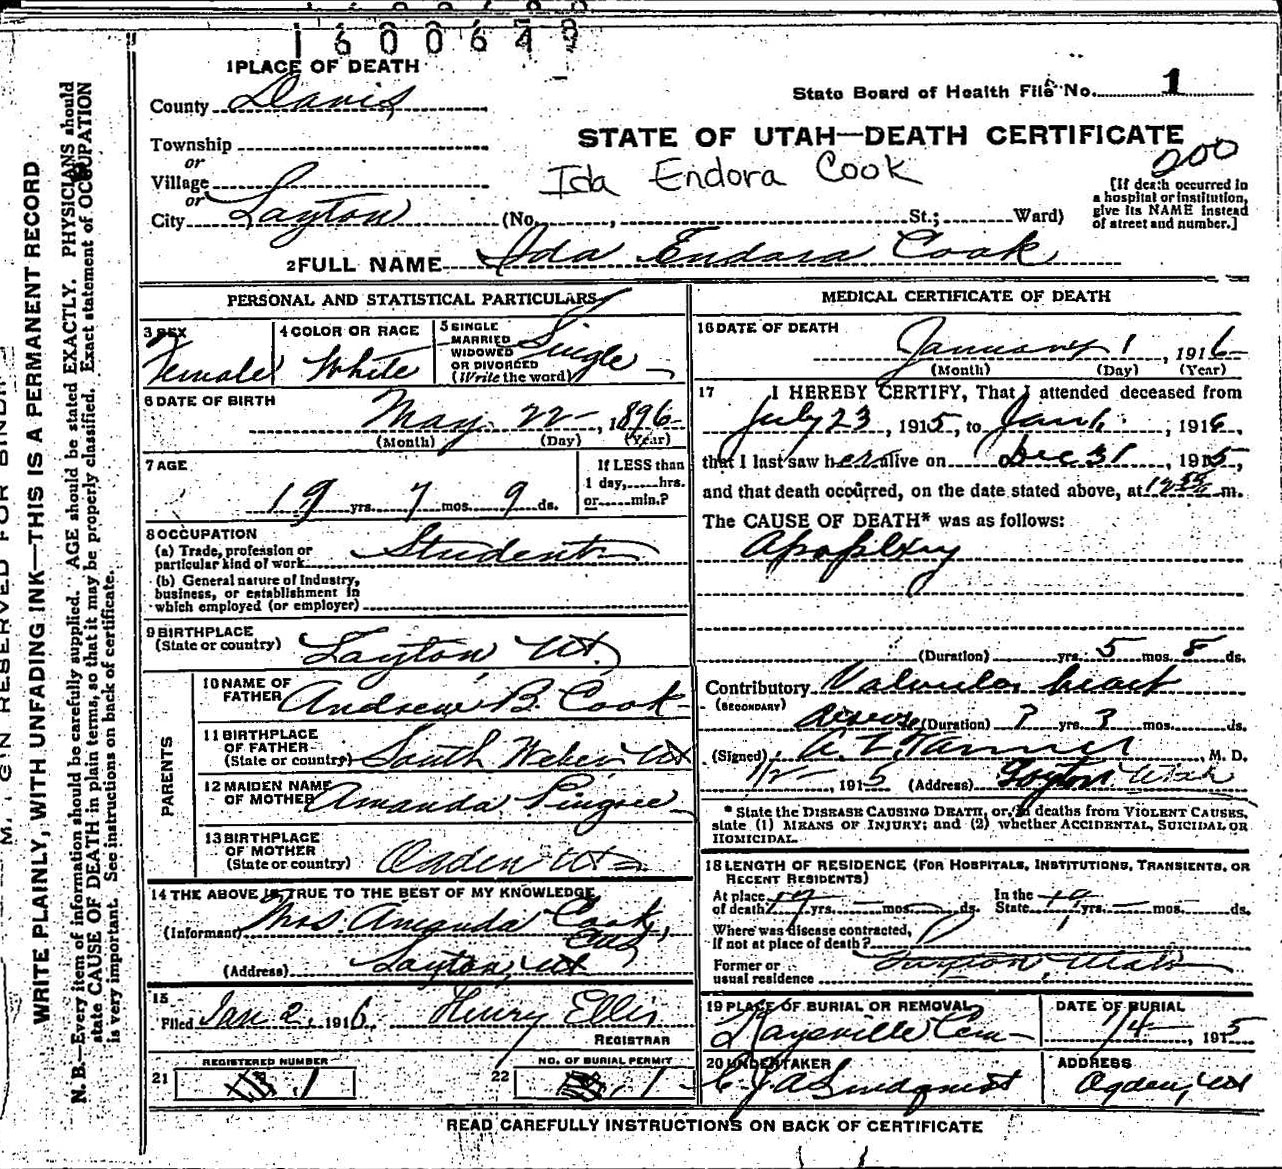 1600648
1 PLACE OF DEATH
County Davis
State Board of Health File No. 1
Township
STATE OF UTAH—DEATH CERTIFICATE
or
Village
200
Ida Endora Cook
[If death occurred in
a hospital or institution,
give its NAME instead
of street and number.]
or
City Layton (No. , St.; Ward)
2 FULL NAME Ida Endora Cook
PERSONAL AND STATISTICAL PARTICULARS
3 SEX
Female
4 COLOR OR RACE
White
5 SINGLE
MARRIED
WIDOWED
OR DIVORCED
(Write the word)
Single
6 DATE OF BIRTH
May 22, 1896
(Month) (Day) (Year)
7 AGE
19 yrs. 7 mos. 9 ds.
If LESS than
1 day, hrs.
or min.?
8 OCCUPATION
(a) Trade, profession or
particular kind of work Student
(b) General nature of Industry,
business, or establishment in
which employed (or employer)
9 BIRTHPLACE
(State or country) Layton, Ut.
PARENTS
10 NAME OF
FATHER Andrew B. Cook
11 BIRTHPLACE
OF FATHER
(State or country) South Weber, Ut
12 MAIDEN NAME
OF MOTHER Amanda Pingree
13 BIRTHPLACE
OF MOTHER
(State or country) Ogden Ut
14 THE ABOVE IS TRUE TO THE BEST OF MY KNOWLEDGE
(Informant) Mrs. Amanda Cook,
(Address) Layton, Ut
15
Filed Jan 2, 1916 Henry Ellis
REGISTRAR
REGISTERED NUMBER
21 1
NO. OF BURIAL PERMIT
22 1
MEDICAL CERTIFICATE OF DEATH
16 DATE OF DEATH
January 1, 1916
(Month) (Day) (Year)
17 I HEREBY CERTIFY, That I attended deceased from
July 23, 1915, to Jan 1, 1916,
that I last saw her alive on Dec 31, 1915,
and that death occurred, on the date stated above, at m.
The CAUSE OF DEATH* was as follows:
Apoplexy
(Duration) yrs. 5 mos. 8 ds.
Contributory Valvular heart
(SECONDARY)
disease (Duration) ? yrs. ? mos. ds.
(Signed) A. Z. Tanner, M. D.
1/2, 1915 (Address) Layton Utah
* State the DISEASE CAUSING DEATH, or, in deaths from VIOLENT CAUSES,
state (1) MEANS OF INJURY; and (2) whether ACCIDENTAL, SUICIDAL OR
HOMICIDAL.
18 LENGTH OF RESIDENCE (FOR HOSPITALS, INSTITUTIONS, TRANSIENTS, OR
RECENT RESIDENTS)
At place
of death 19 yrs. mos. ds.
In the
State 19 yrs. mos. ds.
Where was disease contracted,
if not at place of death?
Former or
usual residence Layton, Utah
19 PLACE OF BURIAL OR REMOVAL
Kaysville Cem
DATE OF BURIAL
1/4, 1915
20 UNDERTAKER
J A Lindquist
ADDRESS
Ogden, Ut
READ CAREFULLY INSTRUCTIONS ON BACK OF CERTIFICATE
GIN RESERVED FOR BINDIN
WRITE PLAINLY, WITH UNFADING INK—THIS IS A PERMANENT RECORD
N. B.—Every item of information should be carefully supplied. AGE should be stated EXACTLY. PHYSICIANS should
state CAUSE OF DEATH in plain terms, so that it may be properly classified. Exact statement of OCCUPATION
is very important. See instructions on back of certificate.